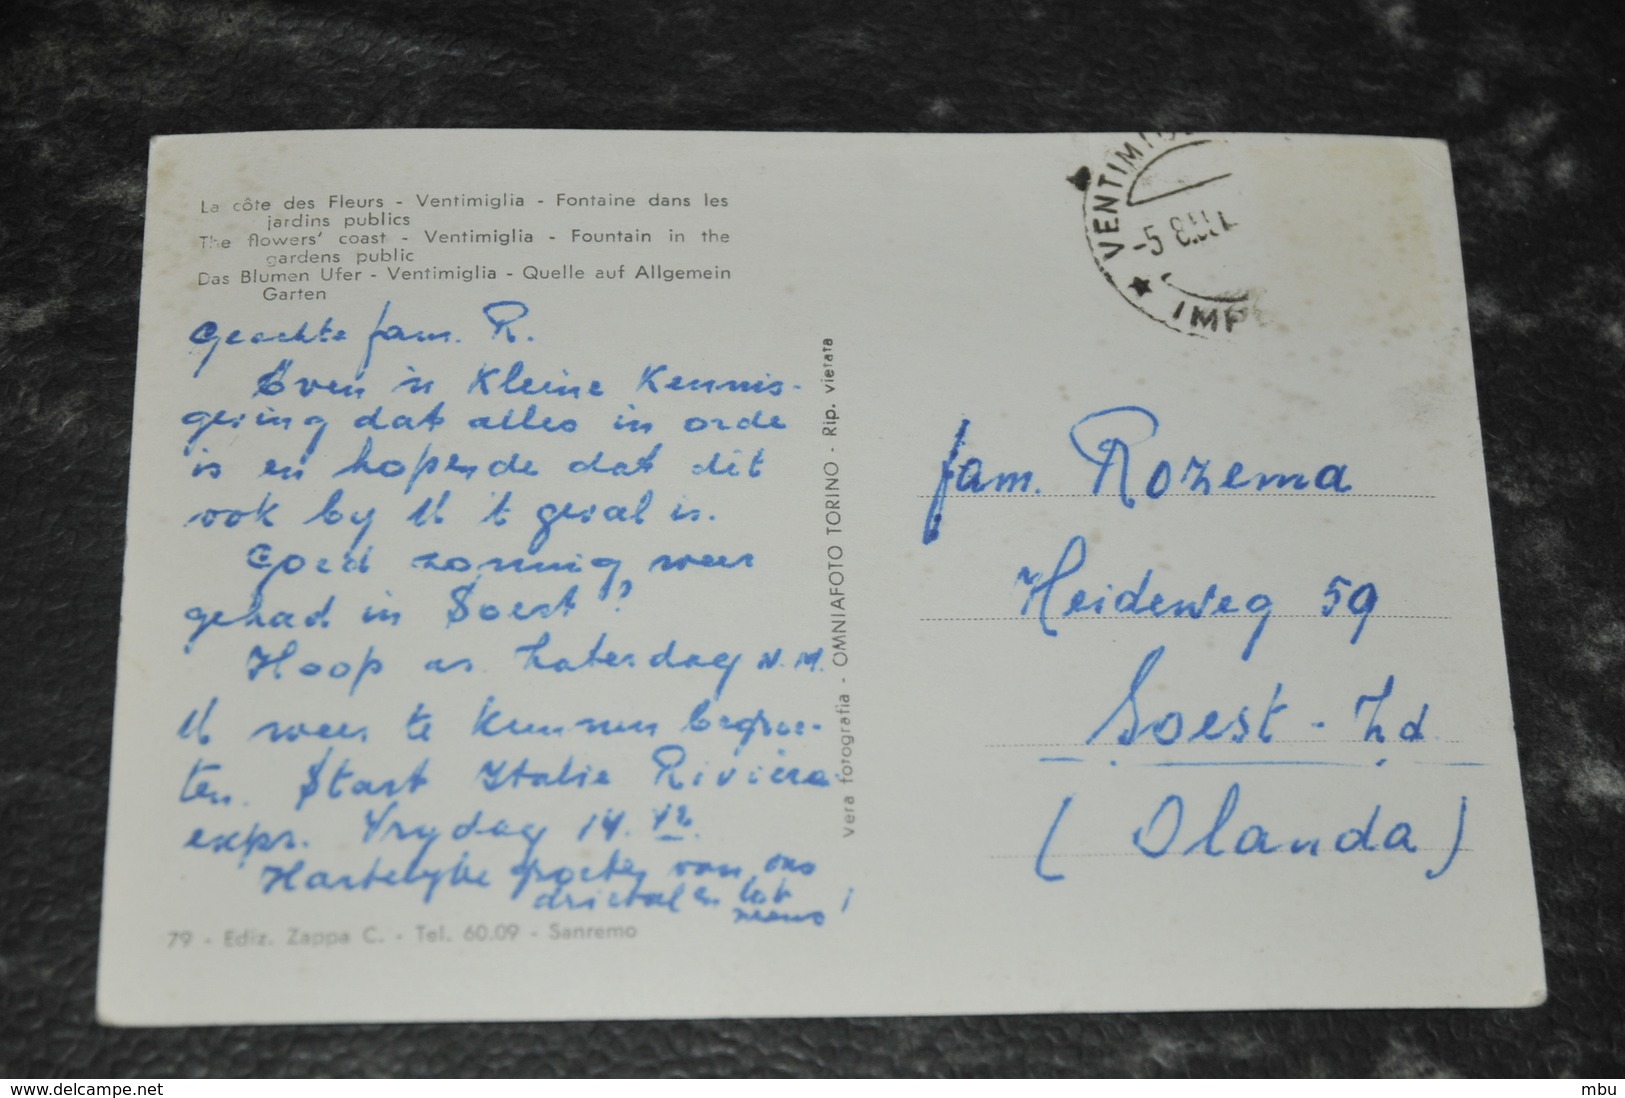 La côte des Fleurs - Ventimiglia - Fontaine dans les
jardins publics
The flowers' coast - Ventimiglia - Fountain in the
gardens public
Das Blumen Ufer - Ventimiglia - Quelle auf Allgemein
Garten
Geachte fam. R.
Even 'n kleine kennis-
geving dat alles in orde
is en hopende dat dit
ook by U 't geval is.
Goed zonnig weer
gehad in Soest?
Hoop as. Zaterdag N.M.
U weer te kunnen begroe-
ten. Start Italie Riviera
expr. Vrydag 14.
Hartelyke groeten van ons
drietal en tot
ziens!
79 - Ediz. Zappa C. - Tel. 60.09 - Sanremo
vera fotografia - OMNIAFOTO TORINO - Rip. vietata
VENTIMIGL
-5 8
IMP
fam. Rozema
Heideweg 59
Soest - Zd
(Olanda)
delcampe.net
mbu